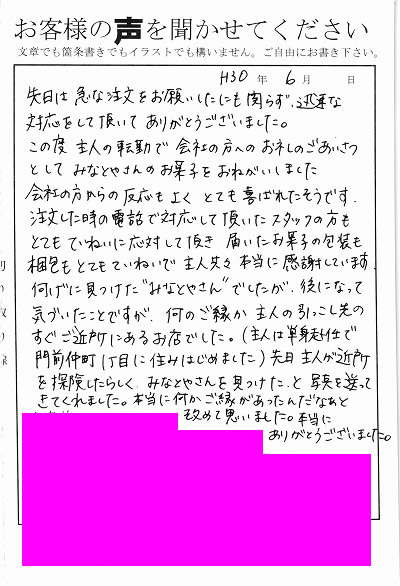 お客様の声を聞かせてください
文章でも箇条書きでもイラストでも構いません。ご自由にお書き下さい。
H30年 6月 日
先日は 急な注文をお願いしたにも関らず、迅速な
対応をして頂いて ありがとうございました。
この度 主人の転勤で 会社の方への おネしのごあいさつ
として みなとやさんのお菓子を おねがいしました
会社の方からの反応もよく とても喜ばれたそうです.
注文した時の電話で対応して頂いたスタッフの方も
とてもていねいに応対して頂き 届いたお菓子の包装も
梱包もとてもていねいで 主人共々 本当に 感謝しています.
何げに見つけた"みなとやさん"でしたが、後になって
気づいたことですが、何のご縁か 主人の引っこし先の
すぐご近所にあるお店でした。(主人は単身赴任で
門前仲町1丁目に住みはじめました) 先日 主人が近所
を探険したらしく みなとやさんを見つけた、と 写真を送って
きてくれました。本当に何かご縁があったんだなぁと
改めて思いました。本当に
ありがとうございました。